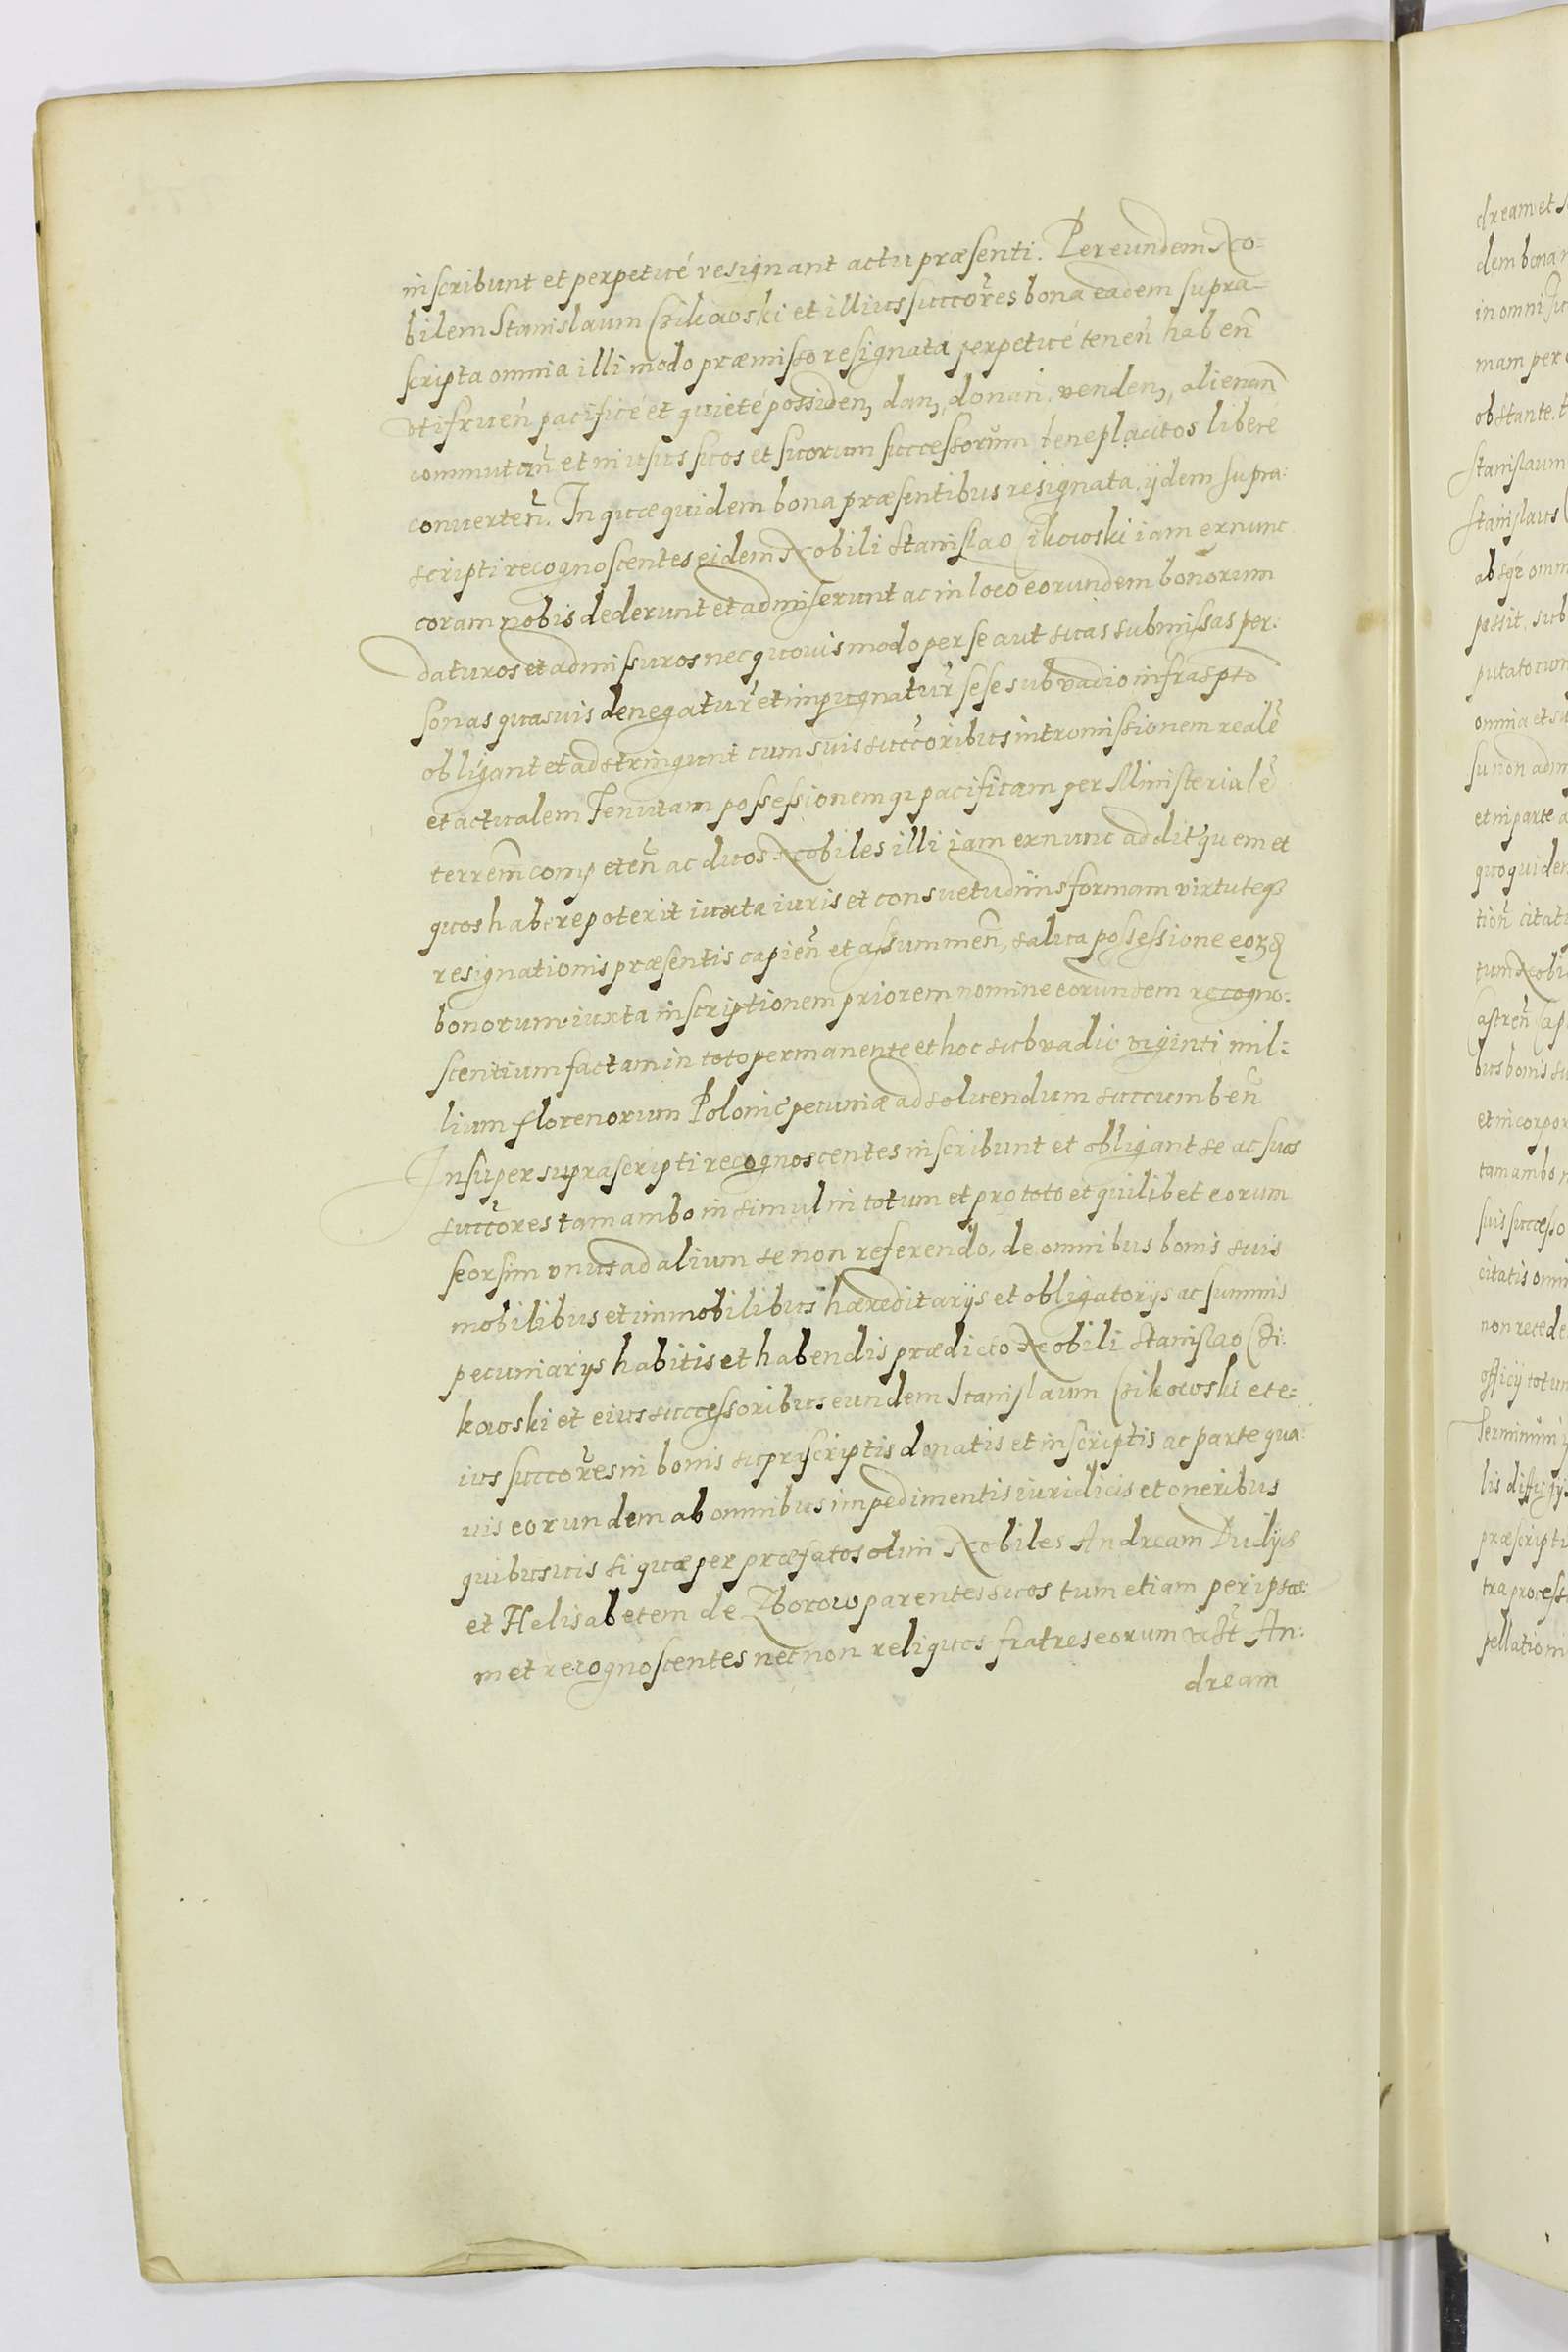 inscribunt et perpetué resignant actu præsenti. Per eundem No-
bilem Stanislaum Czikowski et illius succores bona eadem supra-
scripta omnia illi modo præmisso resignata perpetué teneñ habeñ
vtifrueñ pacificé et quieté possiden, dan, donan, venden, alienañ
commutañ et in usus suos et suorum successorum beneplacitos liberé
conuerteñ. In quæ quidem bona præsentibus resignata, ijdem supra:
scripti recognoscentes eidem Nobili Stanislao Cikowski iam exnunc
coram nobis dederunt et admiserunt ac in loco eorundem bonorum
daturos et admissuros nec quouis modo per se aut suas submissas per:
sonas quasuis denegatur et impugnatur sese sub vadio infraspto
obligant et adstringunt cum suis succoribus intromissionem realē
et actualem Tenutam possessionemq pacificam per Ministerialē
terrem competeñ ac duos Nobiles illi iam exnunc addit quem et
quos habere poterit iuxta iuris et consuetudinis formam virtuteq
resignationis præsentis capieñ et assummeñ, salua possessione eorḍ
bonorum iuxta inscriptionem priorem nomine eorundem recogno:
scentium factam in toto permanente et hoc sub vadio viginti mil:
lium florenorum Polonic pecuniæ ad soluendum succumbeñ
Insuper suprascripti recognoscentes inscribunt et obligant se ac suos
succores tam ambo in simul in totum et pro toto et quilibet eorum
seorsim vnus ad alium se non referendo, de omnibus bonis suis
mobilibus et immobilibus hæreditarijs et obligatorijs ac summis
pecuniarijs habitis et habendis prædicto Nobili Stanislao Czi:
kowski et eius successoribus eundem Stanislaum Czikowski et e:
ius succores in bonis suprascriptis donatis et inscriptis ac parte qua:
uis eorundem ab omnibus impedimentis iuridicis et oneribus
quibusuis si quæ per præfatos olim Nobiles Andream Dudijcz
et Helisabetem de Zborow parentes suos tum etiam per ipsos:
met recognoscentes necnon reliquos fratres eorum An:
dream